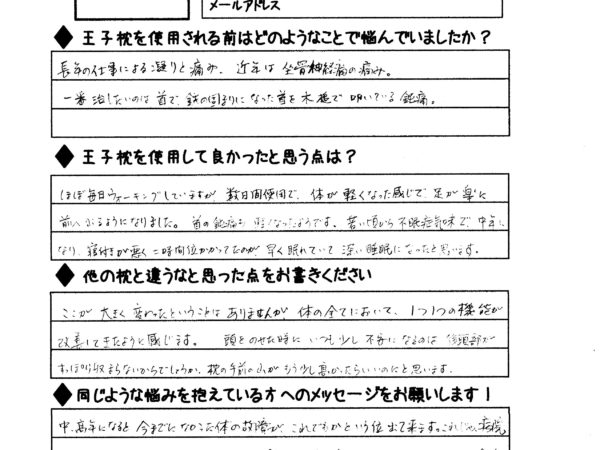 メールアドレス
◆ 王子枕を使用される前はどのようなことで悩んでいましたか？
長年の仕事による凝りと痛み、近年は坐骨神経痛の痛み。
一番治したいのは首で、鉄の固まりになった首を木槌で叩いている鈍痛。
◆ 王子枕を使用して良かったと思う点は？
ほぼ毎日ウォーキングしていますが、数日間使用で、体が軽くなった感じで、足が楽に
前へ出るようになりました。首の鈍痛も なったようです。若い頃から不眠症気味で、中年に
なり、寝付きが悪く二時間位かかってたのが早く眠れていて深い睡眠になったと思います。
◆ 他の枕と違うなと思った点をお書きください
ここが大きく変わったということはありませんが、体の全てにおいて、1つ1つの機能が
改善してきたように感じます。 頭をのせた時にいつも少し不安になるのは後頭部が
すっぽり収まらないからでしょうか、枕の手前の山がもう少し高かったらいいのにと思います。
◆ 同じような悩みを抱えている方へのメッセージをお願いします！
中、高年になると今までになかった体の故障が、これでもかという位出て来ます。これじゃ、病院